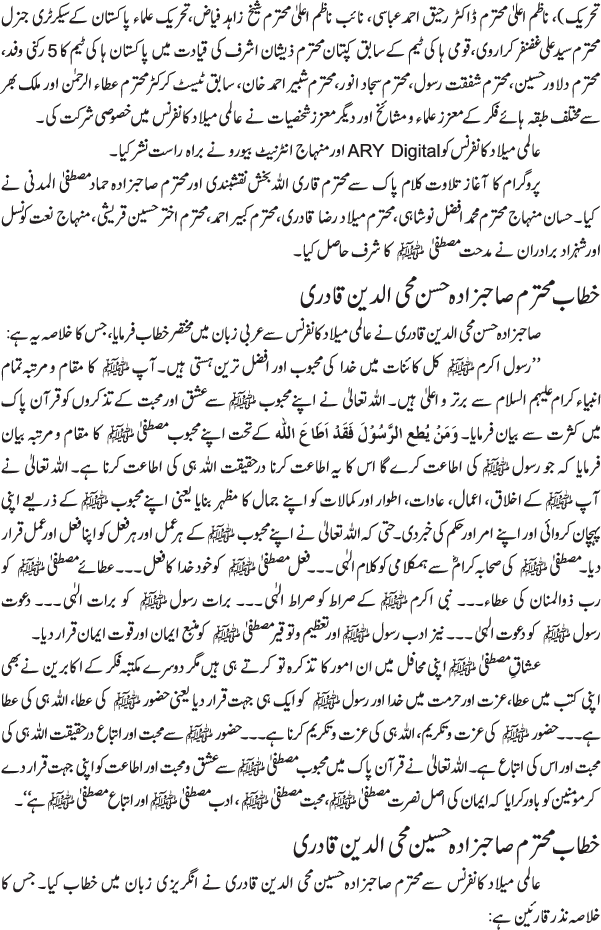 تحریک)، ناظم اعلیٰ محترم ڈاکٹر رحیق احمد عباسی، نائب ناظم اعلیٰ محترم شیخ زاہد فیاض، تحریک علماء پاکستان کے سیکرٹری جنرل
محترم سید علی غضنفر کراروی، قومی ہاکی ٹیم کے سابق کپتان محترم ذیشان اشرف کی قیادت میں پاکستان ہاکی ٹیم کا 5 رکنی وفد،
محترم دلاور حسین، محترم شفقت رسول، محترم سجاد انور، محترم شبیر احمد خان، سابق ٹیسٹ کرکٹر محترم عطاء الرحمٰن اور ملک بھر
سے مختلف طبقہ ہائے فکر کے معزز علماء و مشائخ اور دیگر معزز شخصیات نے عالمی میلاد کانفرنس میں خصوصی شرکت کی۔
عالمی میلاد کانفرنس کو ARY Digital اور منہاج انٹرنیٹ بیورو نے براہ راست نشر کیا۔
پروگرام کا آغاز تلاوت کلام پاک سے محترم قاری اللہ بخش نقشبندی اور محترم صاحبزادہ حماد مصطفیٰ المدنی نے
کیا۔ حسان منہاج محترم محمد افضل نوشاہی، محترم میلاد رضا قادری، محترم کبیر احمد، محترم اختر حسین قریشی، منہاج نعت کونسل
اور شہزاد برادران نے مدحت مصطفیٰ ﷺ کا شرف حاصل کیا۔
خطاب محترم صاحبزادہ حسن محی الدین قادری
صاحبزادہ حسن محی الدین قادری نے عالمی میلاد کانفرنس سے عربی زبان میں مختصر خطاب فرمایا، جس کا خلاصہ یہ ہے:
’’رسول اکرم ﷺ کل کائنات میں خدا کی محبوب اور افضل ترین ہستی ہیں۔ آپ ﷺ کا مقام و مرتبہ تمام
انبیاء کرام علیہم السلام سے برتر و اعلیٰ ہیں۔ اللہ تعالیٰ نے اپنے محبوب ﷺ سے عشق اور محبت کے تذکروں کو قرآن پاک
میں کثرت سے بیان فرمایا۔ وَمَنْ يُطِعِ الرَّسُوْلَ فَقَدْ اَطَاعَ اللهَ کے تحت اپنے محبوب مصطفیٰ ﷺ کا مقام و مرتبہ بیان
فرمایا کہ جو رسول ﷺ کی اطاعت کرے گا اس کا یہ اطاعت کرنا درحقیقت اللہ ہی کی اطاعت کرنا ہے۔ اللہ تعالیٰ نے
آپ ﷺ کے اخلاق، اعمال، عادات، اطوار اور کمالات کو اپنے جمال کا مظہر بنایا یعنی اپنے محبوب ﷺ کے ذریعے اپنی
پہچان کروائی اور اپنے امر اور حکم کی خبر دی۔ حتی کہ اللہ تعالیٰ نے اپنے محبوب ﷺ کے ہر عمل اور ہر فعل کو اپنا فعل اور عمل قرار
دیا۔ مصطفیٰ ﷺ کی صحابہ کرامؓ سے ہمکلامی کو کلام الٰہی ۔۔۔ فعل مصطفیٰ ﷺ کو خود خدا کا فعل۔۔۔ عطائے مصطفیٰ ﷺ کو
رب ذوالمنان کی عطاء۔۔۔ نبی اکرم ﷺ کے صراط کو صراط الٰہی ۔۔۔ برات رسول ﷺ کو برات الٰہی ۔۔۔ دعوت
رسول ﷺ کو دعوت الٰہی ۔۔۔ نیز ادب رسول ﷺ اور تعظیم و توقیر مصطفیٰ ﷺ کو منبع ایمان اور قوت ایمان قرار دیا۔
عشاق مصطفیٰ ﷺ اپنی محافل میں ان امور کا تذکرہ تو کرتے ہی ہیں مگر دوسرے مکتبہ فکر کے اکابرین نے بھی
اپنی کتب میں عطا، عزت اور حرمت میں خدا اور رسول ﷺ کو ایک ہی جہت قرار دیا یعنی حضور ﷺ کی عطا، اللہ ہی کی عطا
ہے۔۔۔ حضور ﷺ کی عزت و تکریم، اللہ ہی کی عزت و تکریم کرنا ہے۔۔۔ حضور ﷺ سے محبت اور اتباع درحقیقت اللہ ہی کی
محبت اور اس کی اتباع ہے۔ اللہ تعالیٰ نے قرآن پاک میں محبوب مصطفیٰ ﷺ سے عشق و محبت اور اطاعت کو اپنی جہت قرار دے
کر مومنین کو باور کرایا کہ ایمان کی اصل نصرت مصطفیٰ ﷺ، محبت مصطفیٰ ﷺ ، ادب مصطفیٰ ﷺ اور اتباع مصطفیٰ ﷺ ہے‘‘۔
خطاب محترم صاحبزادہ حسین محی الدین قادری
عالمی میلاد کانفرنس سے محترم صاحبزادہ حسین محی الدین قادری نے انگریزی زبان میں خطاب کیا۔ جس کا
خلاصہ نذر قارئین ہے: